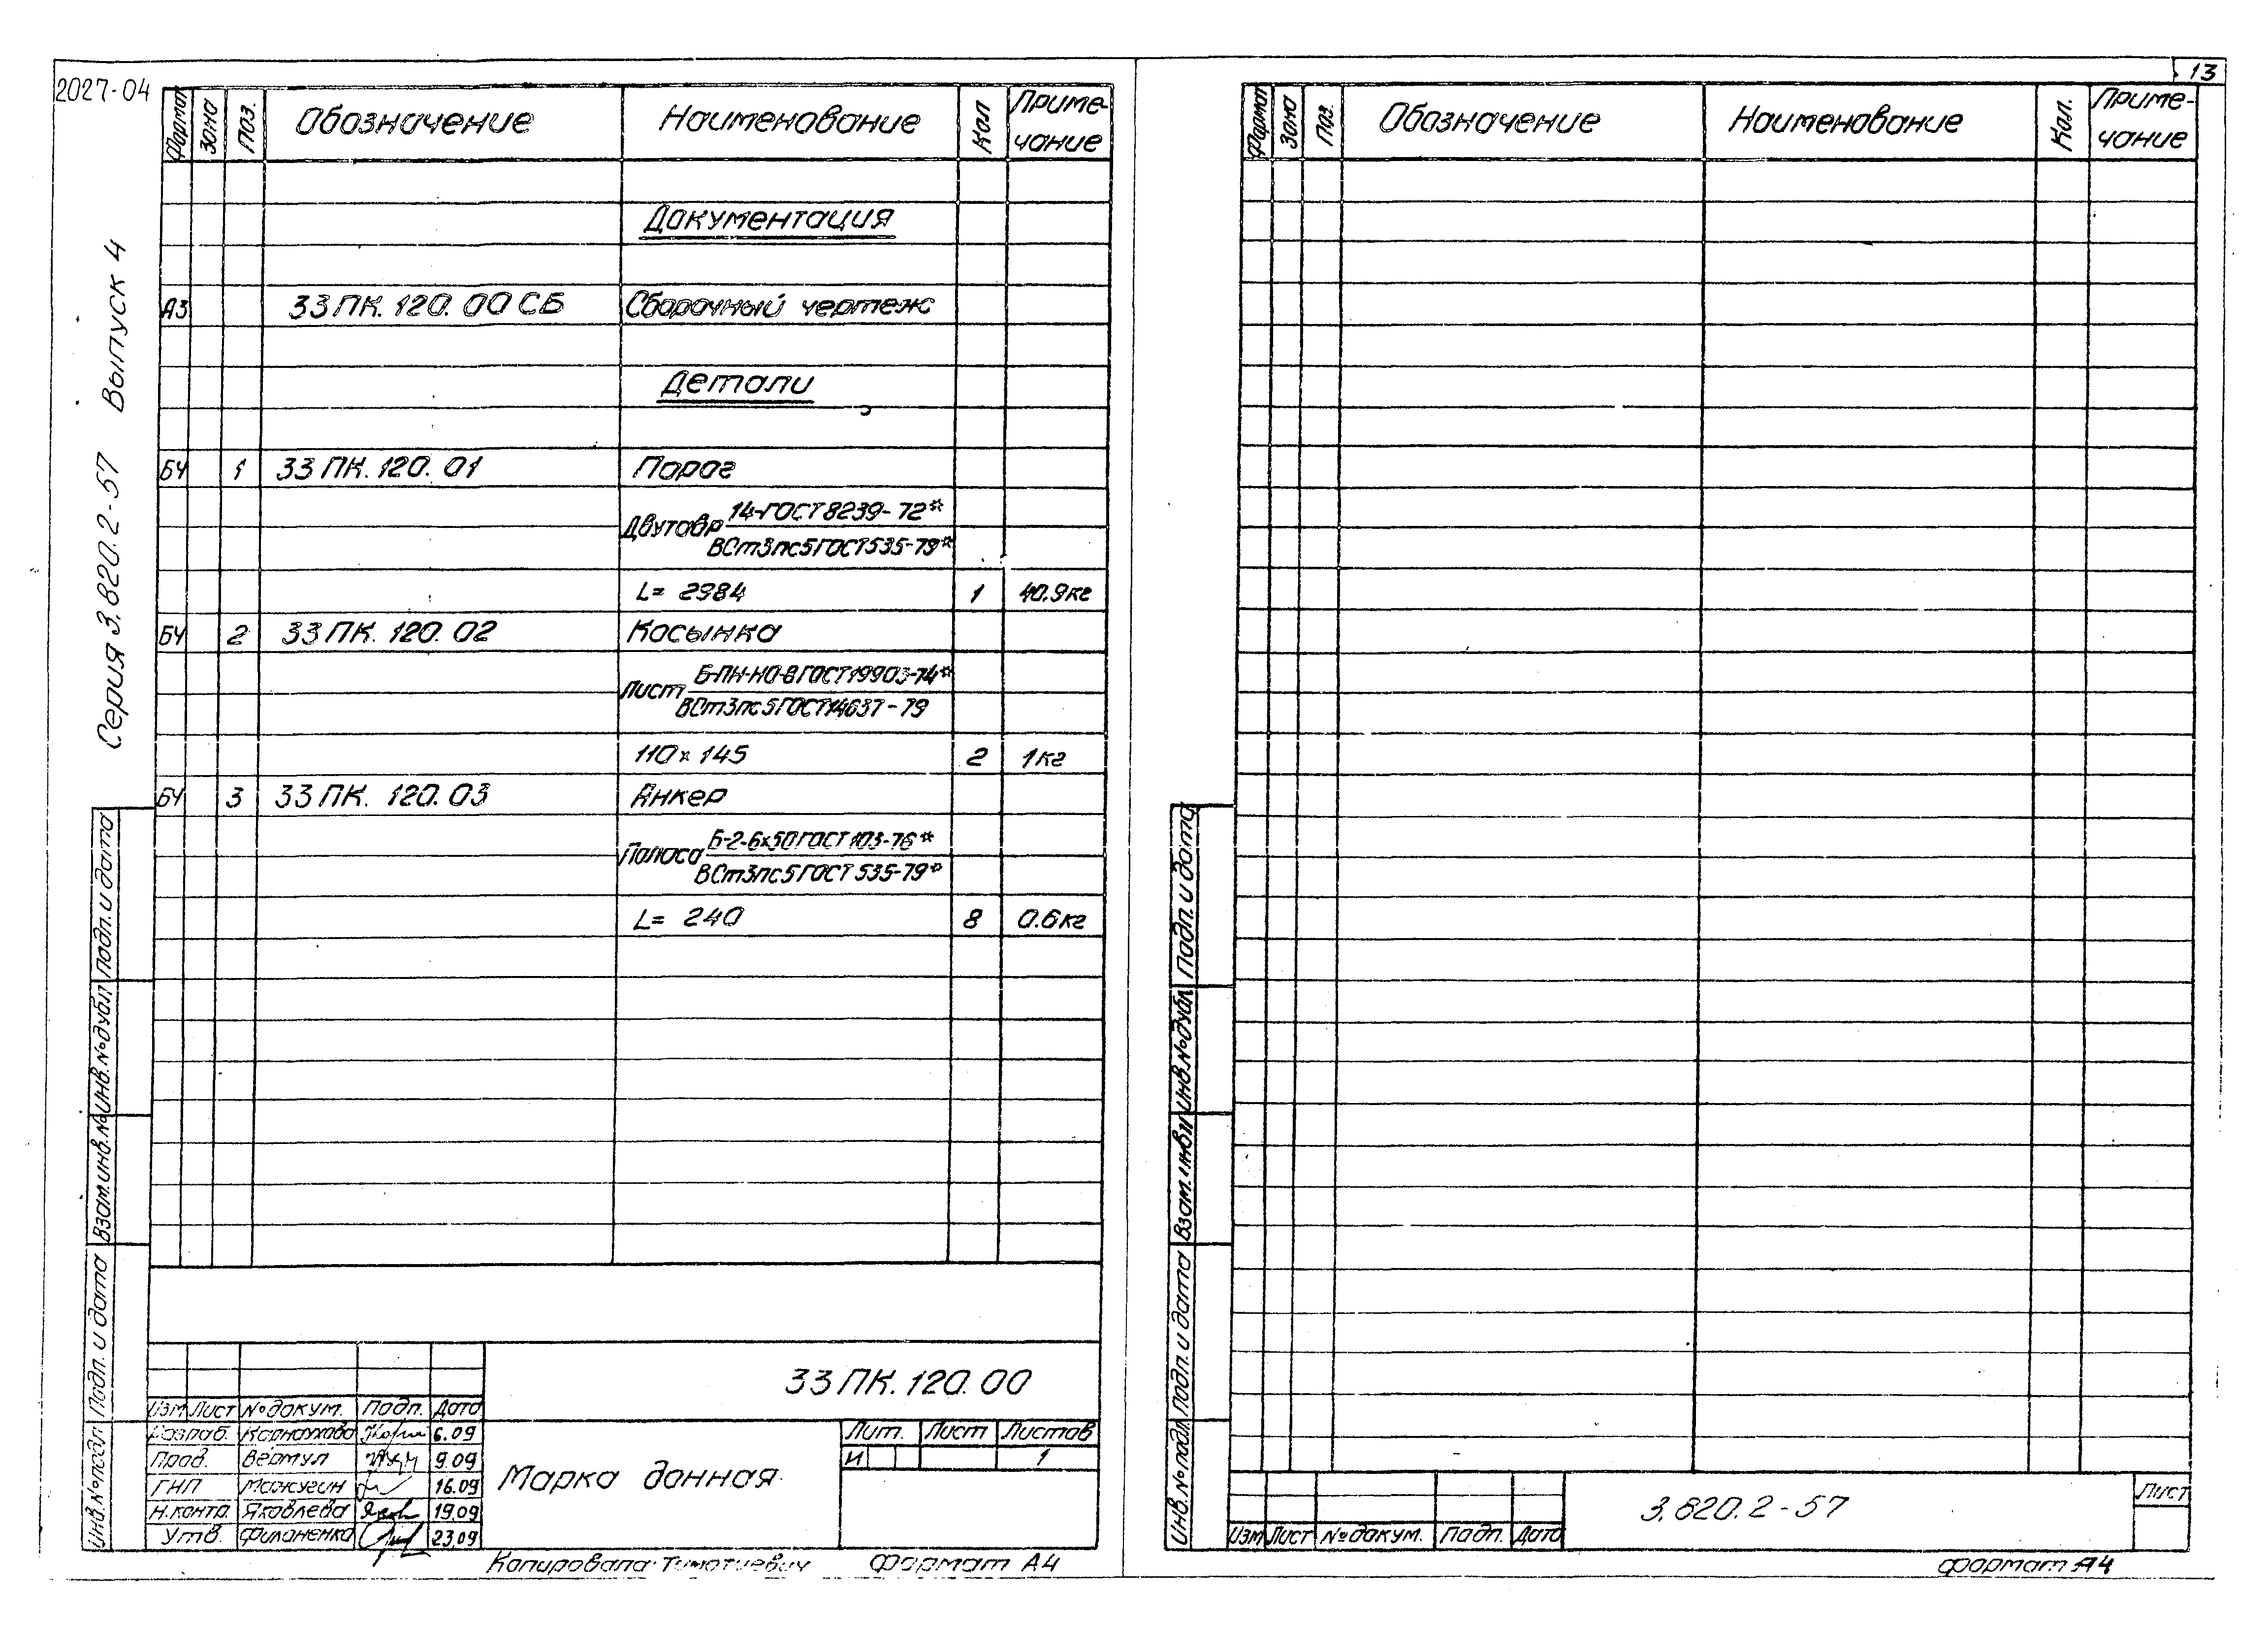 2027-04
13
Серия 3.820.2-57 Выпуск 4
Формат Зона Поз. Обозначение Наименование Кол Приме-чание
Документация
А3 33 ПК. 120. 00 СБ Сборочный чертеж
Детали
БЧ 1 33 ПК. 120. 01 Порог
Двутавр 14-ГОСТ 8239-72*
ВСт3пс5 ГОСТ 535-79*
L= 2984 1 40.9кг
БЧ 2 33 ПК. 120. 02 Косынка
Лист Б-ПН-НО-8 ГОСТ 19903-74*
ВСт3пс5 ГОСТ 14637-79
110 х 145 2 1кг
БЧ 3 33 ПК. 120. 03 Анкер
Полоса Б-2-6х50 ГОСТ 103-76*
ВСт3пс5 ГОСТ 535-79*
L= 240 8 0.6кг
Подп. и дата
Инв.№дубл
Взам.инв.№
Подп. и дата
Инв.№подл
33 ПК. 120. 00
Изм Лист №докум. Подп. Дата
Разраб. Карнаухова 6.09
Пров. Вермул 9.09
ГИП 16.09
Н.контр. Яковлева 19.09
Утв. Филоненко 23.09
Марка донная
Лит. Лист Листов
И 1
Копировала: Тимотиевич Формат А4
Формат Зона Поз. Обозначение Наименование Кол. Приме-чание
Подп. и дата
Инв.№дубл
Взам.инв№
Подп. и дата
Инв.№подл
3.820.2-57
Лист
Изм Лист №докум. Подп. Дата
Формат А4